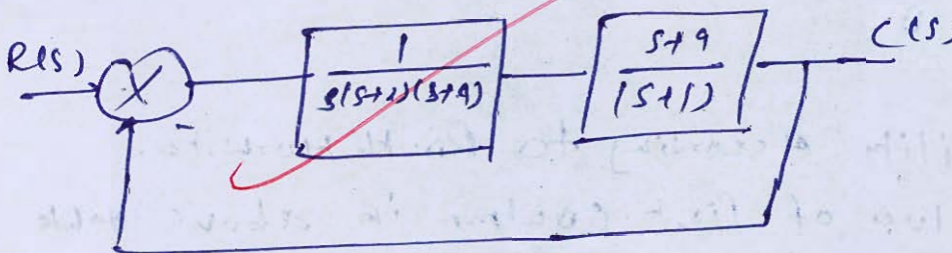 R(S)
1
S(S+2)(S+4)
S+9
(S+1)
C(S)
-